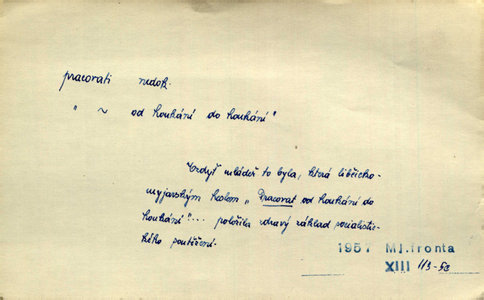 pracovati nedok.
" ~ od koukání do koukání"
Vždyť mládež to byla, která libčicko-
myjavským heslem „Pracovat od koukání do
koukání"... položila zdravý základ socialistic-
kého soutěžení.
1957 Ml. fronta
XIII 113-58